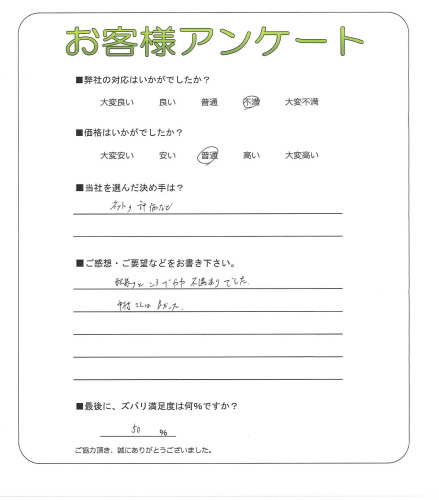 お客様アンケート
■弊社の対応はいかがでしたか？
大変良い 良い 普通 不満 大変不満
■価格はいかがでしたか？
大変安い 安い 普通 高い 大変高い
■当社を選んだ決め手は？
ネットの評価など
■ご感想・ご要望などをお書き下さい。
ところでやや不満ありでした。
中村さんは良かった。
■最後に、ズバリ満足度は何％ですか？
50 ％
ご協力頂き、誠にありがとうございました。